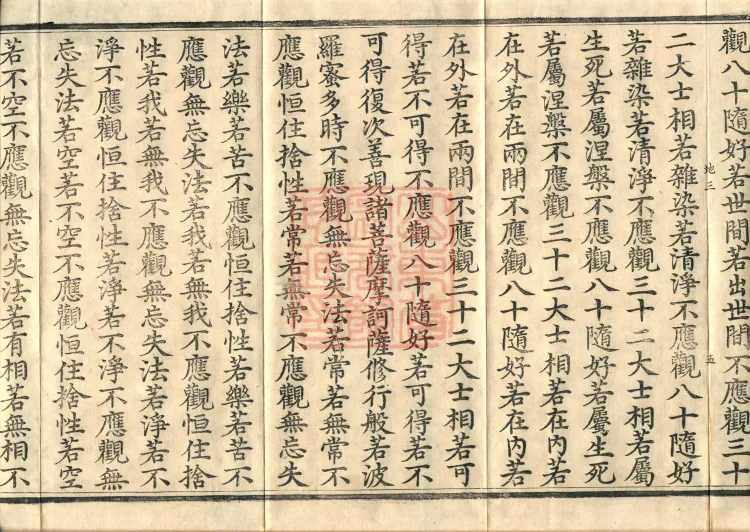 觀八十隨好若世間若出世間不應觀三十
地三
五
二大士相若雜染若清淨不應觀八十隨好
若雜染若清淨不應觀三十二大士相若屬
生死若屬涅槃不應觀八十隨好若屬生死
若屬涅槃不應觀三十二大士相若在內若
在外若在兩間不應觀八十隨好若在內若
在外若在兩間不應觀三十二大士相若可
得若不可得不應觀八十隨好若可得若不
可得復次善現諸菩薩摩訶薩修行般若波
羅蜜多時不應觀無忘失法若常若無常不
應觀恒住捨性若常若無常不應觀無忘失
法若樂若苦不應觀恒住捨性若樂若苦不
應觀無忘失法若我若無我不應觀恒住捨
性若我若無我不應觀無忘失法若淨若不
淨不應觀恒住捨性若淨若不淨不應觀無
忘失法若空若不空不應觀恒住捨性若空
若不空不應觀無忘失法若有相若無相不